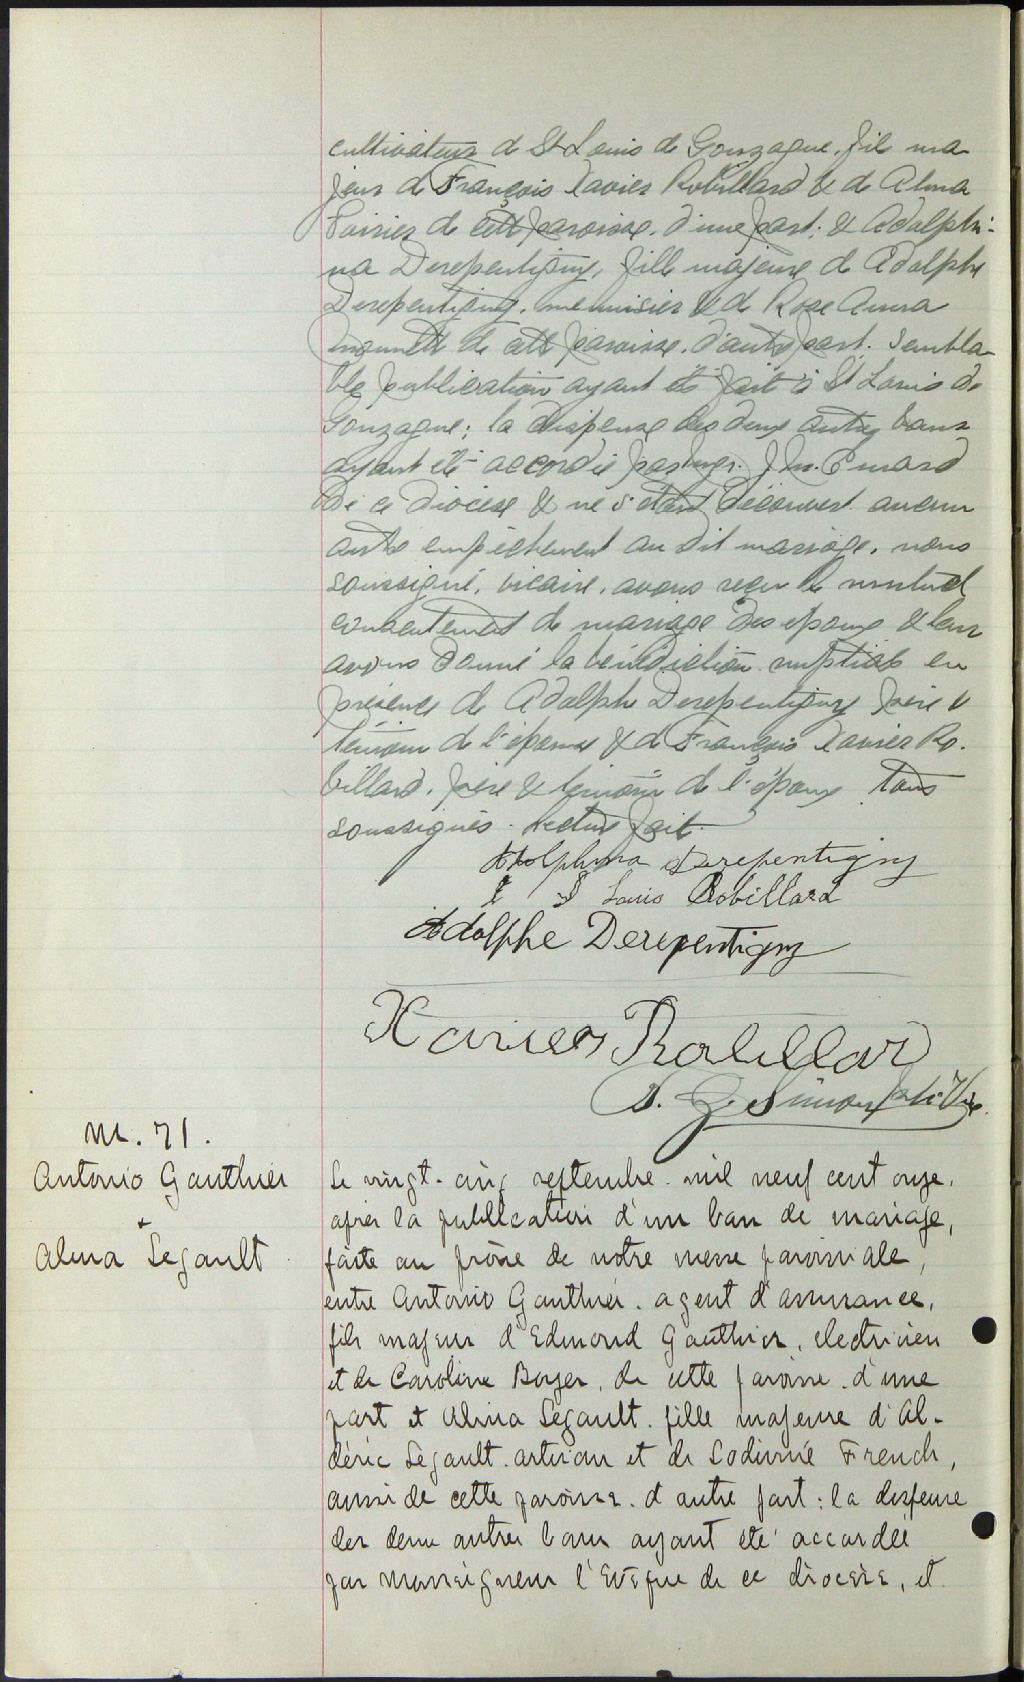 cultivateur de St Louis de Gonzague, fils ma-
jeur de François Xavier Robillard & de Alma
Poirier de cette paroisse, d'une part; & Adolphi-
na Derepentigny, fille majeure de Adolphe
Derepentigny, menuisier & de Rose Anna
de cette paroisse, d'autre part. Sembla-
ble publication ayant été faite à St Louis de
Gonzague; la dispense des deux autres bans
ayant été accordée par Mgr. J. M. Emard
de ce diocèse & ne s'étant découvert aucun
autre empêchement au dit mariage, nous
soussigné, vicaire, avons reçu le mutuel
consentement de mariage des époux & leur
avons donné la bénédiction nuptiale en
présence de Adolphe Derepentigny père &
témoin de l'épouse & de François Xavier Ro-
billard, père & témoin de l'époux tous
soussignés. Lecture faite.
Adolphina Derepentigny
Louis Robillard
Adolphe Derepentigny
Xavier Robillard
M. 71.
Antonio Gauthier
+
Alma Legault
Le vingt-cinq septembre mil neuf cent onze,
après la publication d'un ban de mariage,
faite au prône de notre messe paroissiale,
entre Antonio Gauthier, agent d'assurance,
fils majeur d'Edmond Gauthier, electricien
et de Caroline Boyer, de cette paroisse, d'une
part et Alma Legault, fille majeure d'Al-
déric Legault, artisan et de Lodivine French,
aussi de cette paroisse, d'autre part; la dispense
des deux autres bans ayant été accordée
par Monseigneur l'Evêque de ce diocèse, et